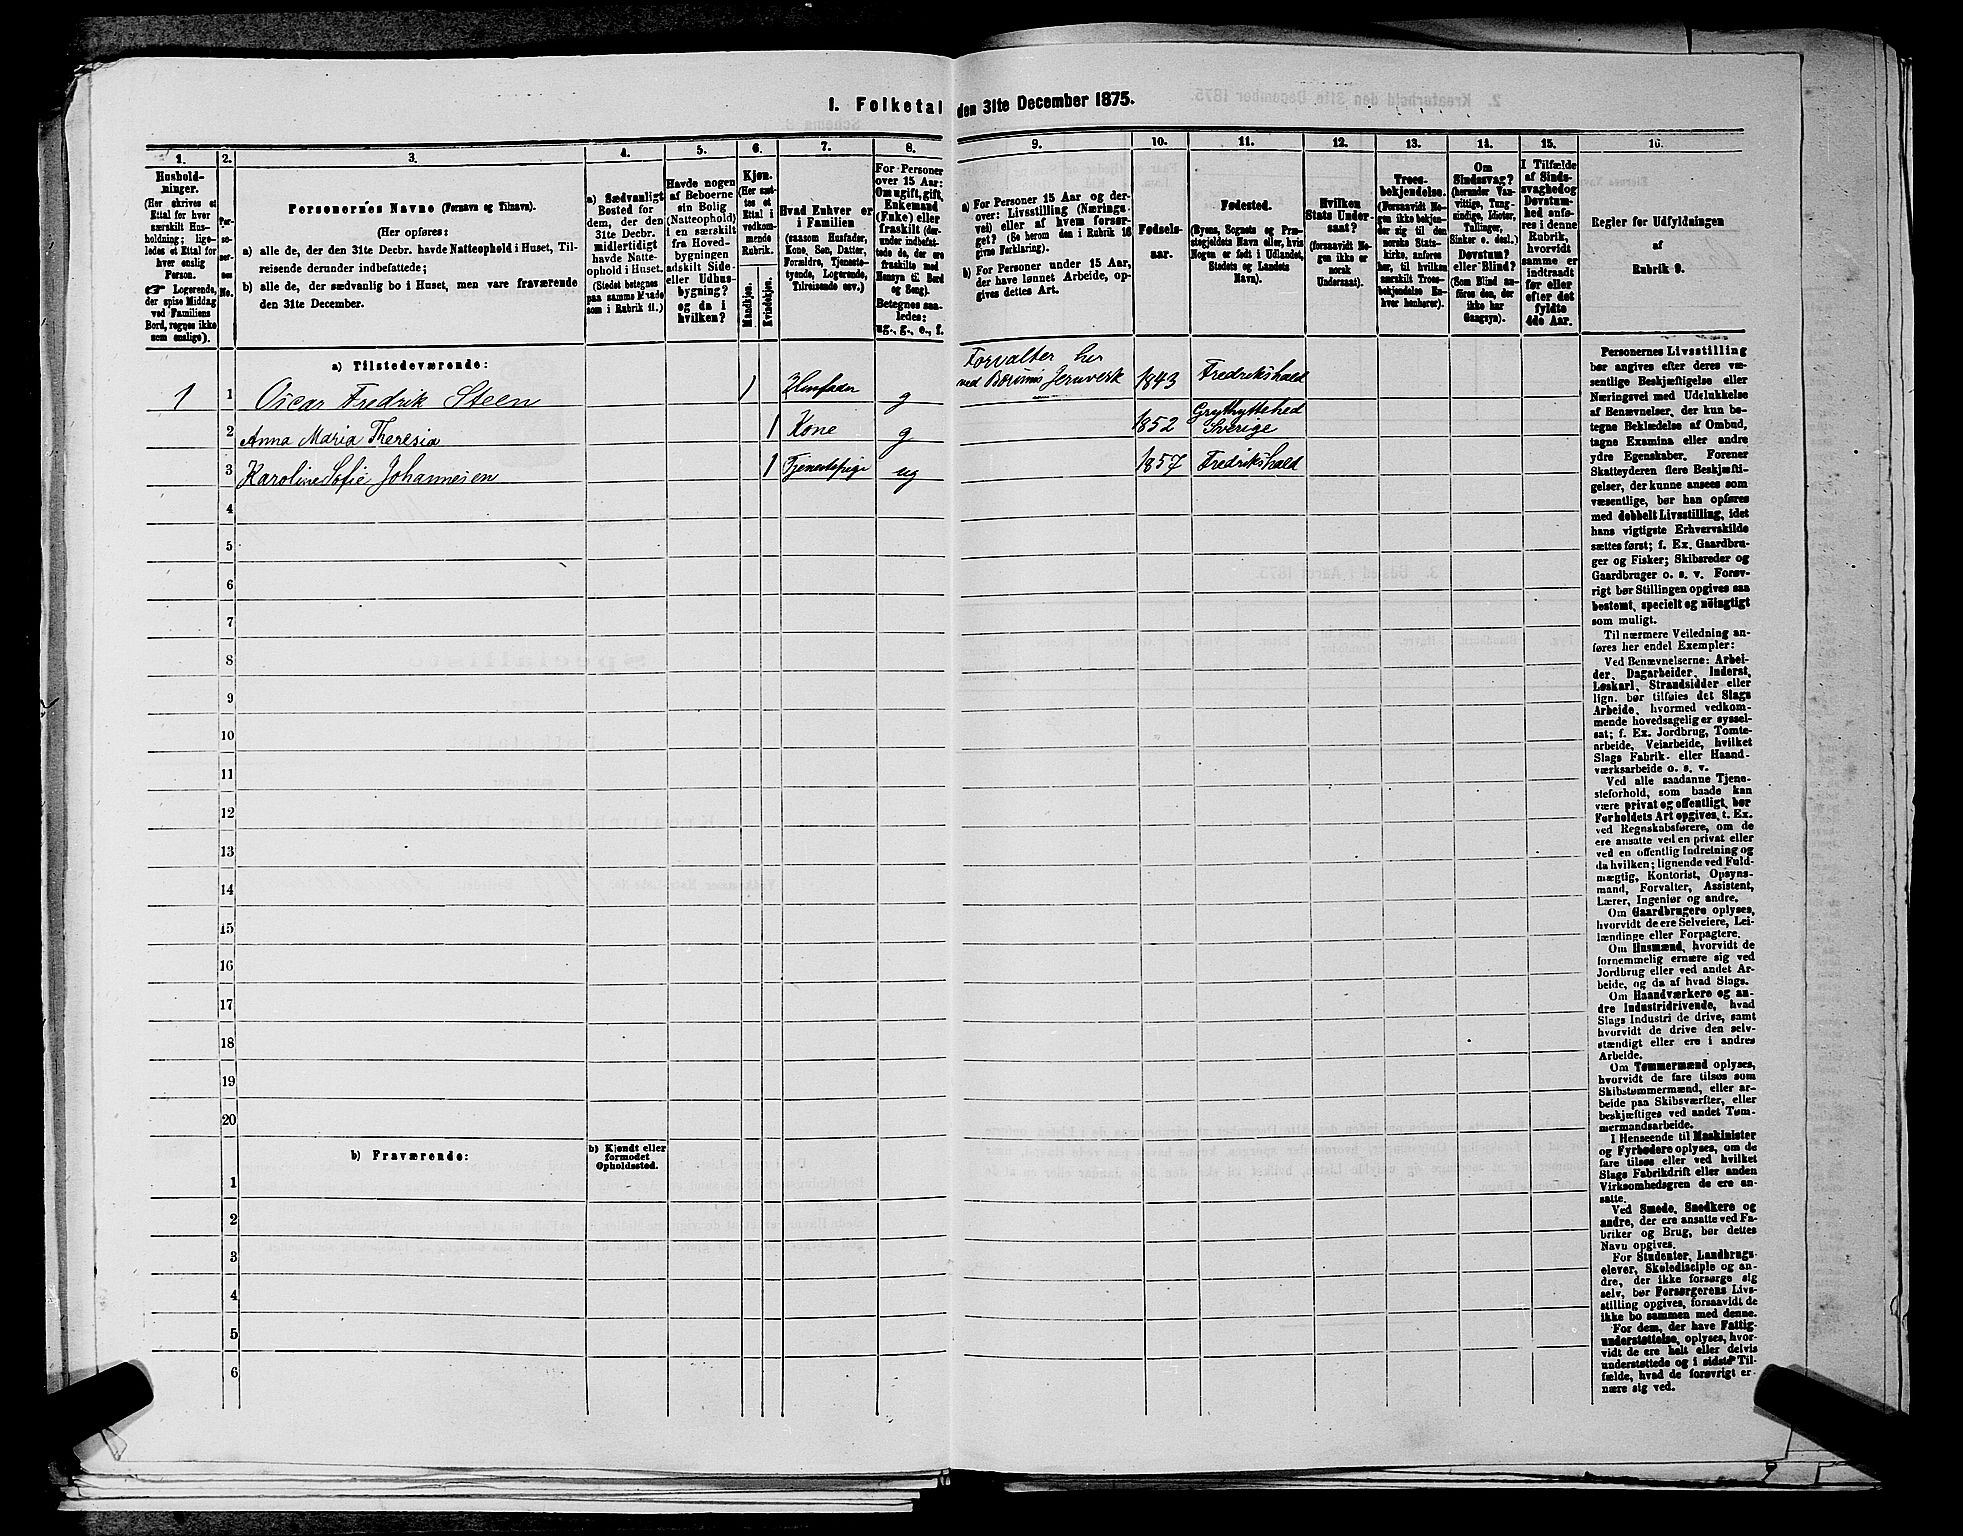 1. Folketal den 31te December 1875.
1.
2.
3.
4.
5.
6.
7.
8.
9.
10.
11.
12.
13.
14.
15.
16.
Hushold-
ninger.
(Her skrives et
Ettal for hver
særskilt Hus-
holdning; lige-
ledes et Ettal for
hver enslig
Person.
☞ Logerende,
der spise Middag
ved Familiens
Bord, regnes ikke
som enslige).
Per-
so-
ner-
nes
No.
Personernes Navne (Fornavn og Tilnavn).
(Her opføres:
a) alle de, der den 31te Decbr. havde Natteophold i Huset, Til-
reisende derunder indbefattede;
b) alle de, der sædvanlig bo i Huset, men vare fraværende
den 31te December.
a) Sædvanligt
Bosted for
dem, der den
31te Decbr.
midlertidigt
havde Natte-
ophold i Huset.
(Stedet betegnes
paa samme Maade
som i Rubrik 11.)
Havde nogen
af Beboerne
sin Bolig
(Natteophold)
i en særskilt
fra Hoved-
bygningen
adskilt Side-
eller Udhus-
bygning?
og da i
hvilken?
Kjøn.
(Her sæt-
tes et
Ettal i
vedkom-
mende
Rubrik.
Mandkjøn.
Kvindekjøn.
Hvad Enhver er
i Familien
(saasom Husfader,
Kone, Søn, Datter,
Forældre, Tjeneste-
tyende, Logerende,
Tilreisende osv.)
For Personer
over 15 Aar:
Om ugift, gift,
Enkemand
(Enke) eller
fraskilt (der-
under indbefat-
tede de, der ere
fraskilte med
Hensyn til Bord
og Seng).
Betegnes saa-
ledes:
ug., g., e., f.
a) For Personer 15 Aar og der-
over: Livsstilling (Nærings-
vei) eller af hvem forsør-
get? (Se herom den i Rubrik 16
givne Forklaring).
b) For Personer under 15 Aar,
der have lønnet Arbeide, op-
gives dettes Art.
Fødsels-
aar.
Fødested.
(Byens, Sognets og Præ-
stegjeldets Navn eller, hvis
Nogen er født i Udlandet,
Stedets og Landets
Navn).
Hvilken
Stats Under-
saat?
(forsaavidt No-
gen ikke er
norsk
Undersaat).
Troes-
bekjendelse.
(Forsaavidt No-
gen ikke bekjen-
der sig til den
norske Stats-
kirke, anføres
her, til hvilken
særskilt Troes-
bekjendelse En-
hver henhører).
Om
Sindssvag?
(herunder Van-
vittige, Tung-
sindige, Idioter,
Tullinger,
Sinker o. desl.)
Døvstum?
eller Blind?
(Som Blind an-
føres den, der
ikke har
Gangsyn).
I Tilfælde
af Sinds-
svaghed og
Døvstum-
hed anfø-
res i denne
Rubrik,
hvorvidt
samme er
indtraadt
før eller
efter det
fyldte
4de Aar.
Regler for Udfyldningen
af
Rubrik 9.
a) Tilstedeværende:
1 1 Oscar Fredrik Steen 1 Husfader g Forvalter her
ved Bærums Jernværk 1843 Fredrikshald
2 Anna Maria Theresia 1 Kone g 1852 Grythyttehed
Sverige
3 Karoline Sofie Johannesen 1 Tjenestepige ug 1857 Fredrikshald
4
5
6
7
8
9
10
11
12
13
14
15
16
17
18
19
20
b) Fraværende:
b) Kjendt eller
formodet
Opholdssted.
1
2
3
4
5
6
Personernes Livsstilling
bør angives efter deres væ-
sentlige Beskjæftigelse eller
Næringsvei med Udelukkelse
af Benævnelser, der kun be-
tegne Beklædelse af Ombud,
tagne Examina eller andre
ydre Egenskaber. Forener
Skatteyderen flere Beskjæfti-
gelser, der kunne ansees som
væsentlige, bør han opføres
med dobbelt Livsstilling, idet
hans vigtigste Erhvervskilde
sættes først; f. Ex. Gaardbru-
ger og Fisker; Skibsreder og
Gaardbruger o. s. v. Forøv-
rigt bør Stillingen opgives saa
bestemt, specielt og nöiagtigt
som muligt.
Til nærmere Veiledning an-
føres her endel Exempler:
Ved Benævnelserne: Arbei-
der, Dagarbeider, Inderst,
Løskarl, Strandsidder eller
lign. bør tilføies det Slags
Arbeide, hvormed vedkom-
mende hovedsagelig er syssel-
sat; f. Ex. Jordbrug, Tomte-
arbeide, Veiarbeide, hvilket
Slags Fabrik- eller Haand-
værksarbeide o. s. v.
Ved alle saadanne Tjene-
steforhold, som baade kan
være privat og offentligt, bør
Forholdets Art opgives, t. Ex.
ved Regnskabsførere, om de
ere ansatte ved en privat eller
ved en offentlig Indretning og
da hvilken; lignende ved Fuld-
mægtig, Kontorist, Opsyns-
mand, Forvalter, Assistent,
Lærer, Ingeniør og andre.
Om Gaardbrugere oplyses,
hvorvidt de ere Selveiere, Lei-
lændinge eller Forpagtere.
Om Husmænd, hvorvidt de
fornemmelig ernære sig ved
Jordbrug eller ved andet Ar-
beide, og da af hvad Slags.
Om Haandværkere og an-
dre Industridrivende, hvad
Slags Industri de drive, samt
hvorvidt de drive den selv-
stændigt eller ere i andres
Arbeide.
Om Tømmermænd oplyses,
hvorvidt de fare tilsøs som
Skibstømmermænd, eller ar-
beide paa Skibsværfter, eller
beskjæftiges ved andet Tøm-
mermandsarbeide.
I Henseende til Maskinister
og Fyrbødere oplyses, om de
fare tilsøs eller ved hvilket
Slags Fabrikdrift eller anden
Virksomhedsgren de ere an-
satte.
Ved Smede, Snedkere og
andre, der ere ansatte ved Fa-
briker og Brug, bør dettes
Navn opgives.
For Studenter, Landbrugs-
elever, Skoledisciple og an-
dre, der ikke forsørge sig
selv, bør Forsørgerens Livs-
stilling opgives, forsaavidt de
ikke bo sammen med denne.
For dem, der have Fattig-
understøttelse, oplyses, hvor-
vidt de ere helt eller delvis
understøttede og i sidste Til-
fælde, hvad de forøvrigt er-
nære sig ved.